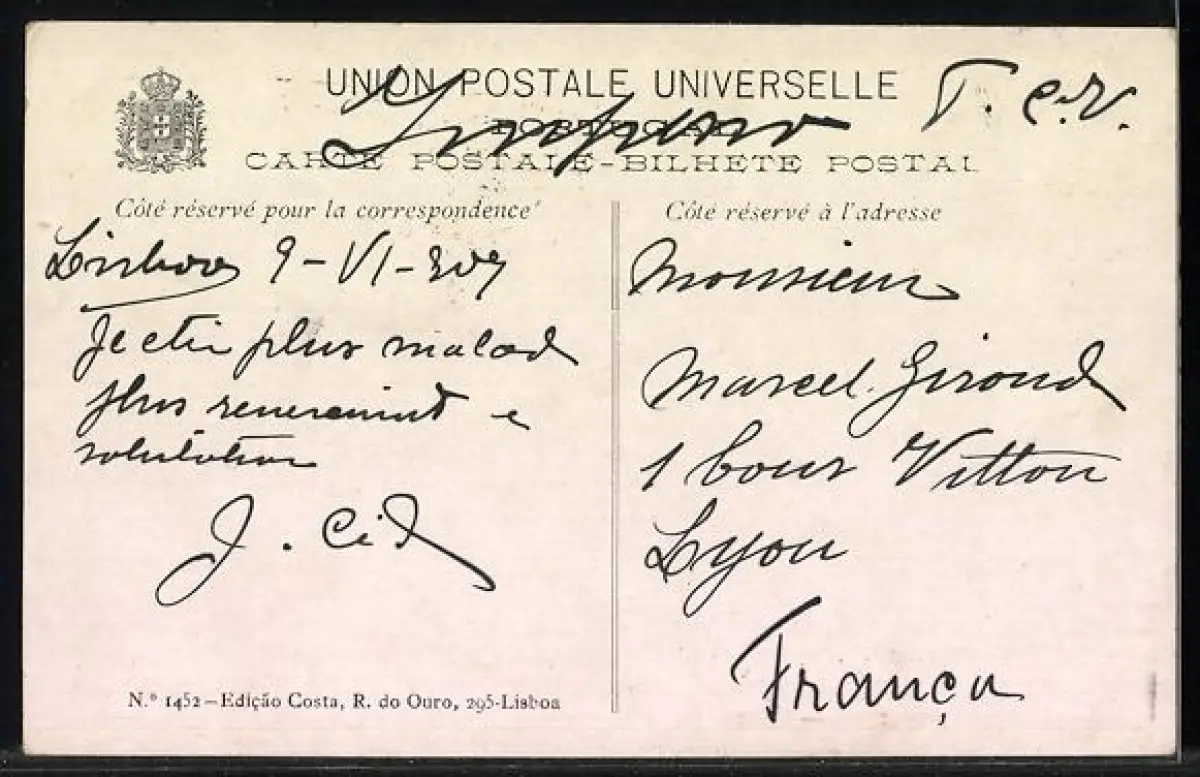 UNION POSTALE UNIVERSELLE
T. C. V.
PORTUGAL
Impreso
CARTE POSTALE-BILHETE POSTAL
Côté réservé pour la correspondence
Lisboa 9-VI-907
Je plus malad
plus e
salutation
J. Cid
N.º 1452 - Edição Costa, R. do Ouro, 295-Lisboa
Côté réservé à l'adresse
Monsieur
Marcel Giroud
1 Cour Vitton
Lyon
França